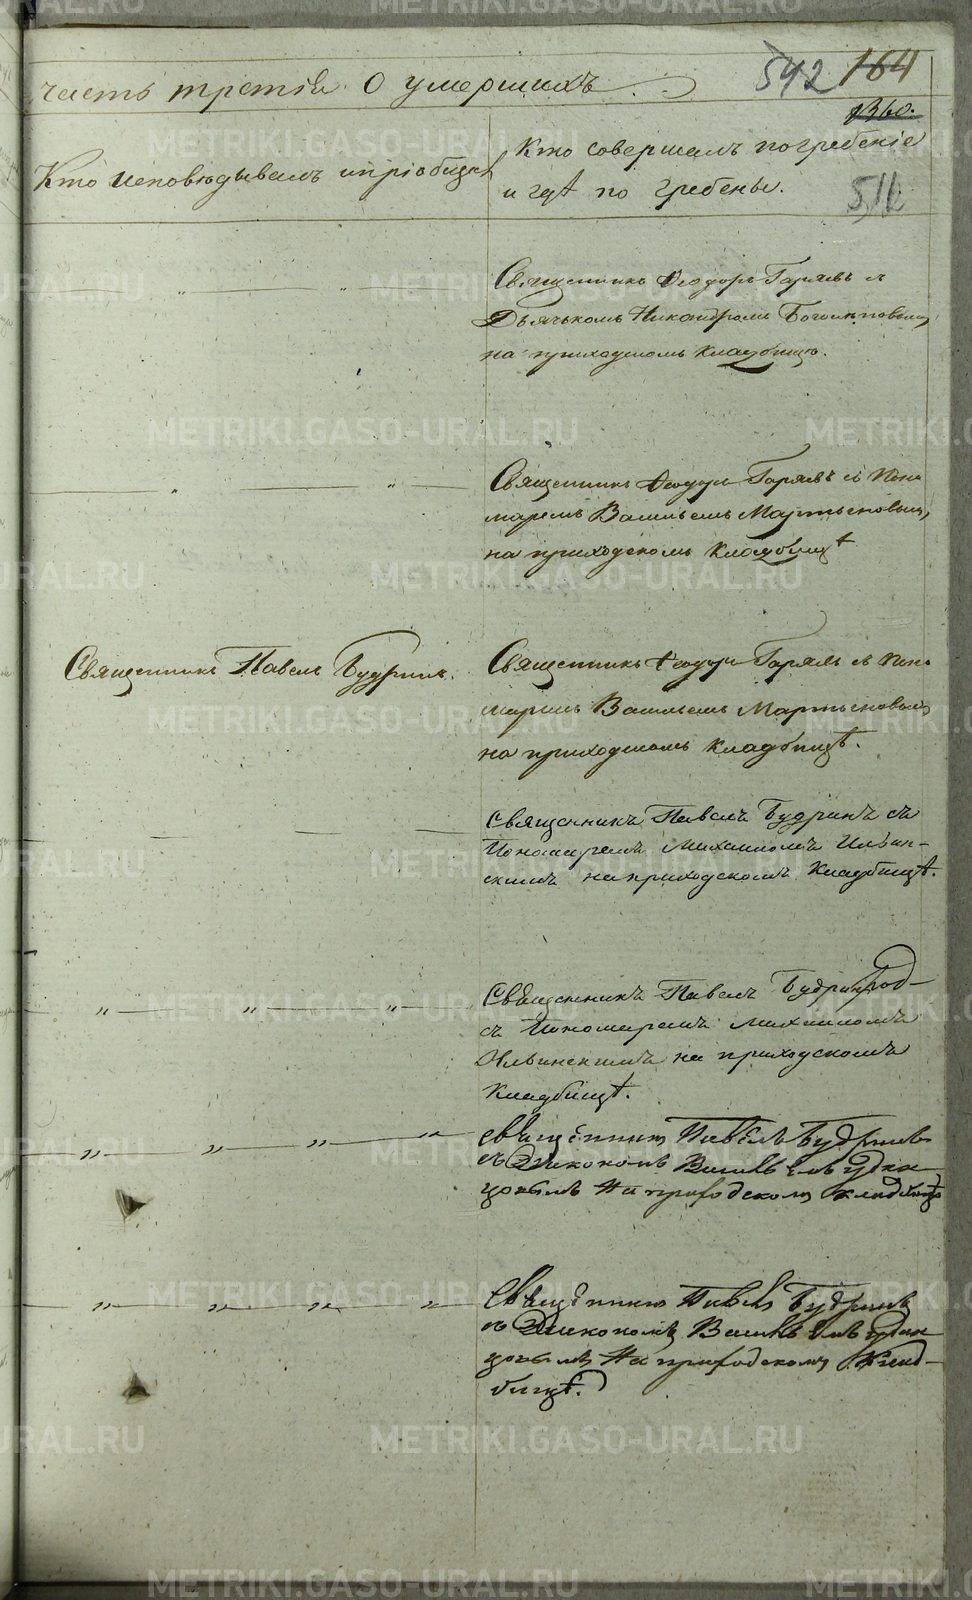 часть третія О умершихъ.
542 164
1360.
Кто исповѣдывалъ и пріобщалъ
Кто совершалъ погребеніе
и гдѣ по гребены.
511
Священникъ Ѳеодоръ Горяевъ съ
Дьячькомъ Никандромъ
на приходскомъ кладбищѣ.
Священникъ Ѳеодоръ Горяевъ съ Поно
маремъ Васильемъ Мартыновымъ
на приходскомъ кладбищѣ
Священникъ Павелъ Будринъ.
Священникъ Ѳеодоръ Горяевъ съ Поно
маремъ Васильемъ Мартыновымъ
на приходскомъ кладбищѣ.
Священникъ Павелъ Будринъ съ
Пономаремъ Михаиломъ Ильин-
скимъ на приходскомъ Кладбищѣ.
Священникъ Павелъ Будринъ
съ Пономаремъ Михаиломъ
Ильинскимъ на приходскомъ
Кладбищѣ.
Священникъ Павелъ Будринъ
съ Діакономъ Васильемъ Удин
цовымъ На приходскомъ кладбищѣ
Священникъ Павелъ Будринъ
съ Діакономъ Васильемъ Удин
цовымъ На приходскомъ Клад-
бищѣ.
METRIKI.GASO-URAL.RU